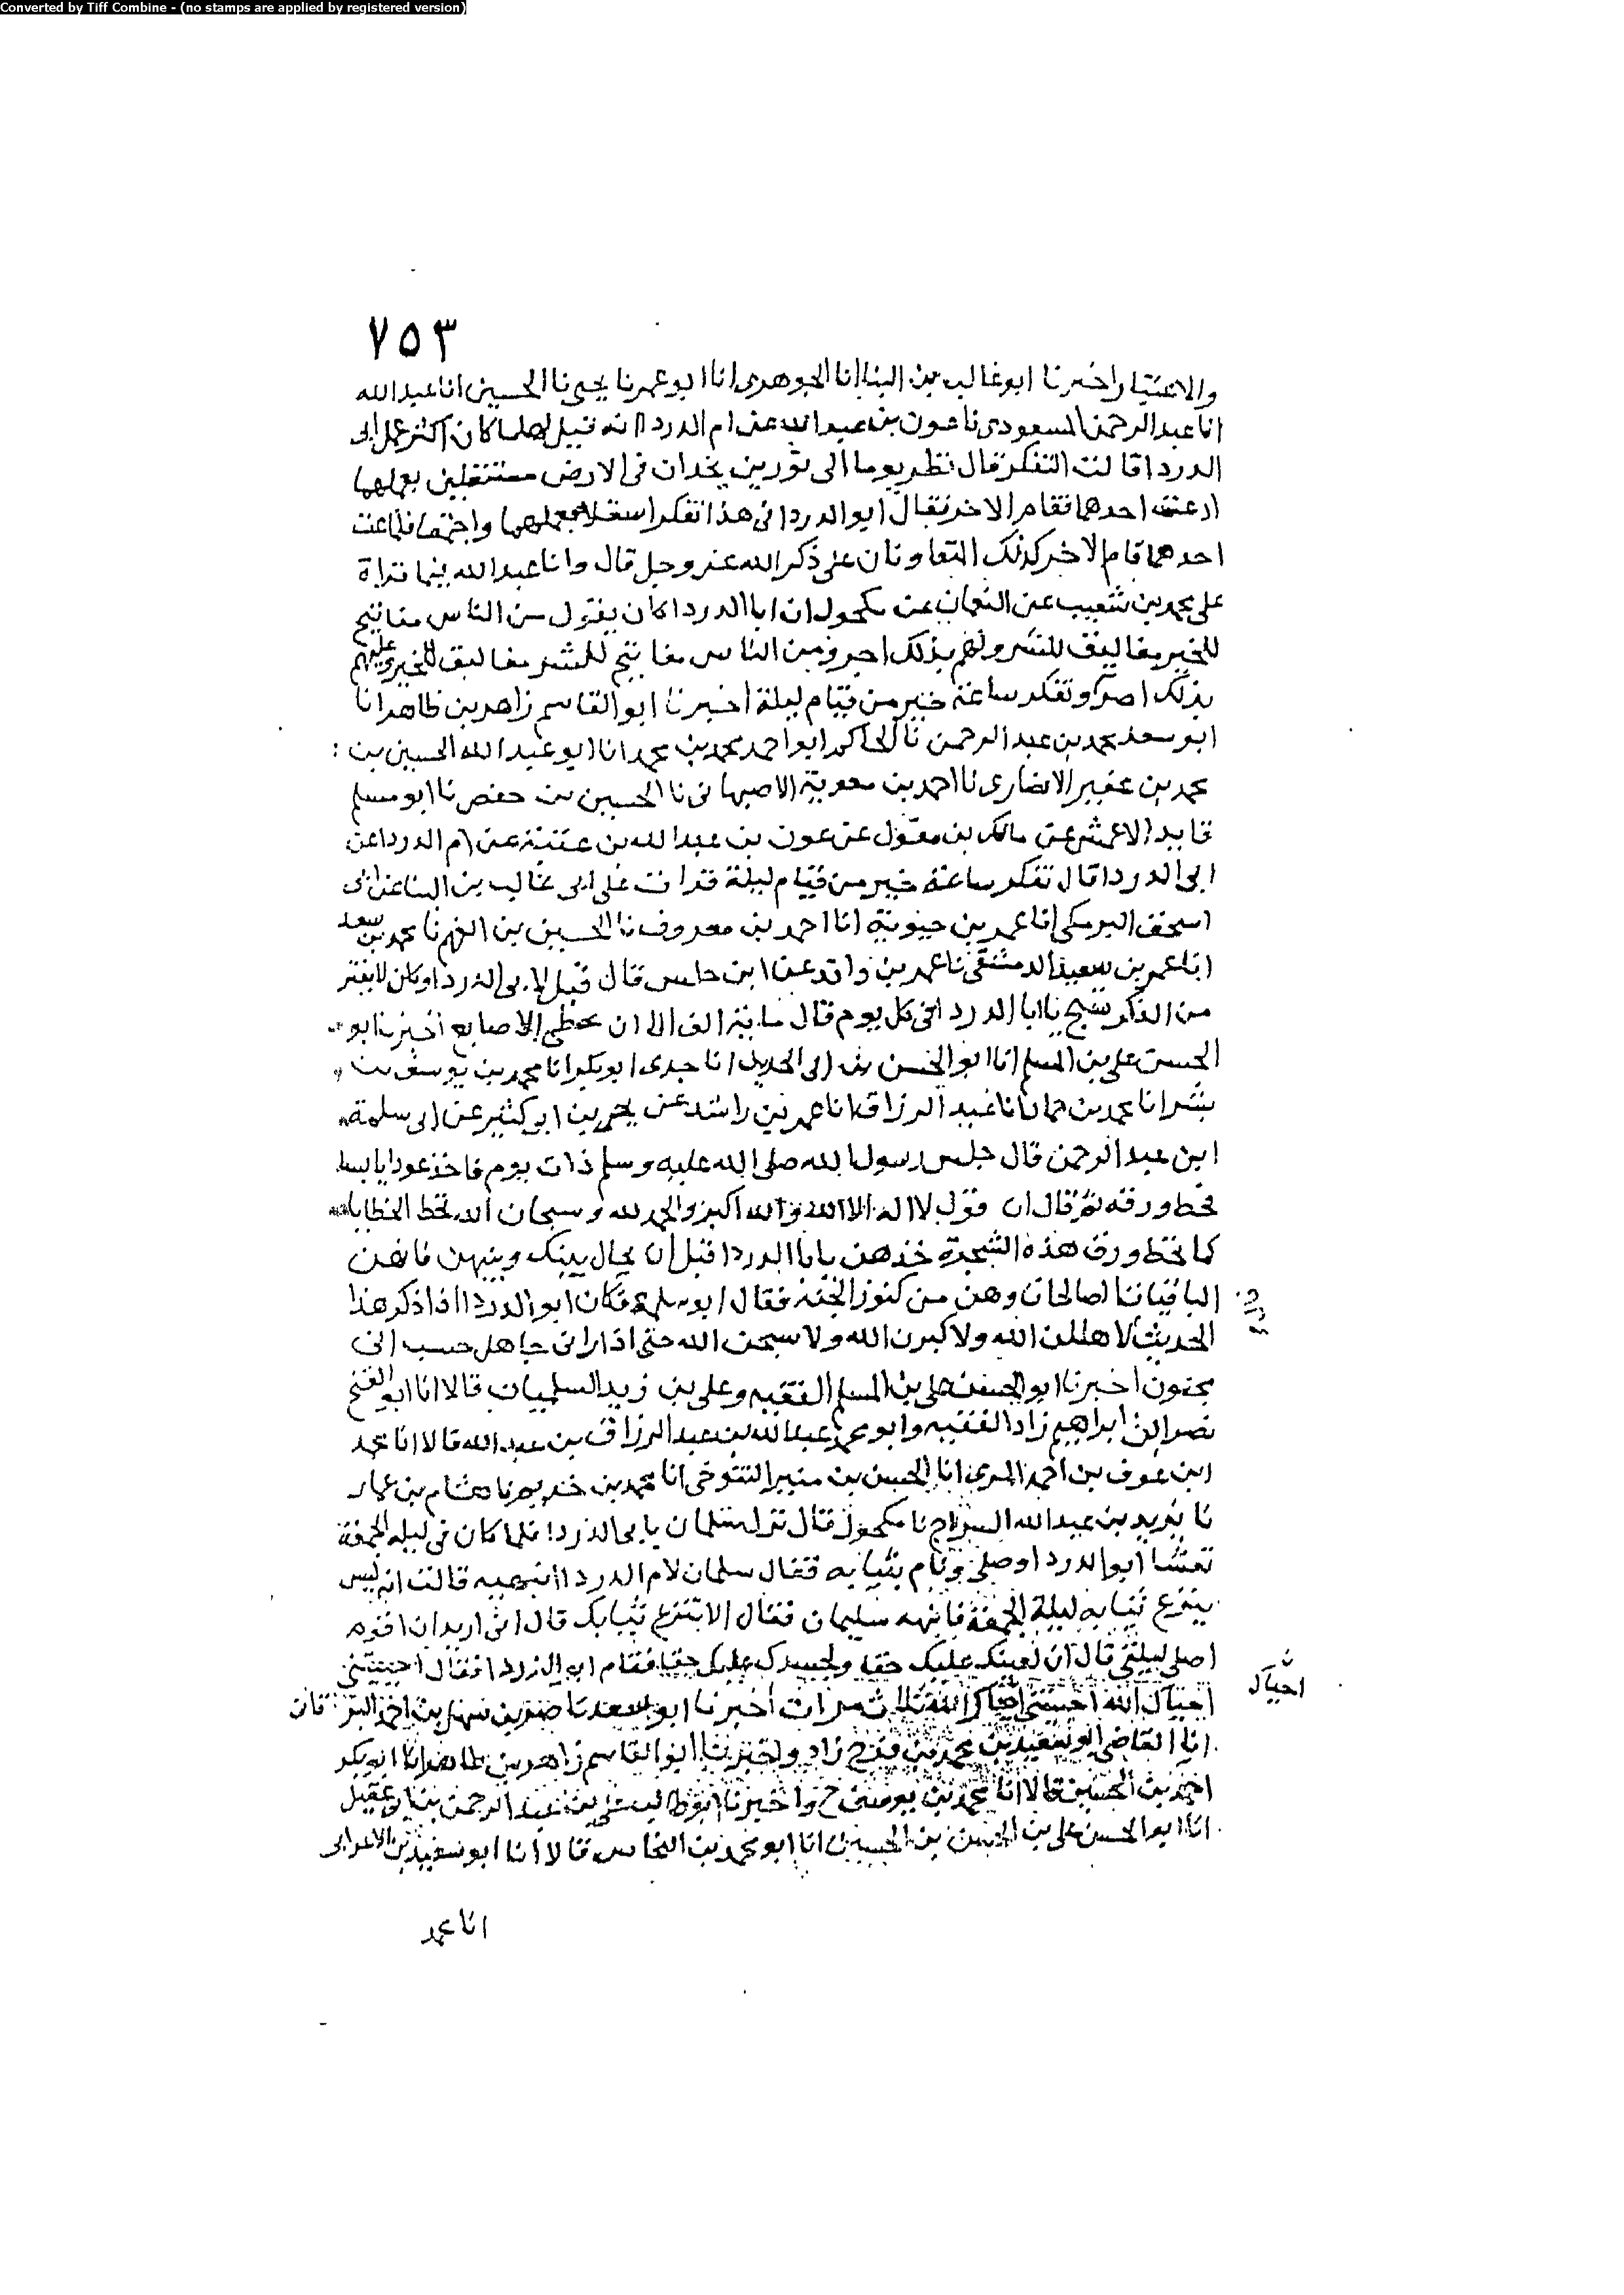 Converted by Tiff Combine - (no stamps are applied by registered version)
٧٥٣
والاعتبار اخبرنا ابو غالب بن البنا انا الجوهري انا ابو عمر نا يحيى نا الحسين انا عبد الله
انا عبد الرحمن المسعودي نا عون بن عبد الله عن ام الدردا انه قيل لها ما كان اكثر عمل ابي
الدردا قالت التفكر قال نظر يوما الى ثورين يخدان في الارض مستقلين بعملهما
اذ عنت احدهما فقام الاخر فقال ابو الدردا في هذا تفكر استقلا بعملهما واجتمعا فلما عنت
احدهما قام الاخر كذلك المتعاونان على ذكر الله عز وجل قال وانا عبد الله فيما قراة
على محمد بن شعيب عن النعمان عن مكحول ان ابا الدردا كان يقول من الناس مفاتيح
للخير مغاليق للشر ولهم بذلك اجر ومن الناس مفاتيح للشر مغاليق للخير وعليهم
بذلك اصر وتفكر ساعة خير من قيام ليلة اخبرنا ابو القاسم زاهر بن طاهر انا
ابو سعد محمد بن عبد الرحمن نا الحاكم ابو احمد محمد بن محمد انا ابو عبد الله الحسين بن :
محمد بن عفير الانصاري نا احمد بن معوية الاصبهاني نا الحسين بن حفص نا ابو مسلم
قايد الاعمش عن مالك بن مغول عن عون بن عبد الله بن عتبة عن ام الدردا عن
ابي الدردا قال تفكر ساعة خير من قيام ليلة قرات على ابي غالب بن البنا عن ابي
اسحق البرمكي انا عمر بن حيوية انا احمد بن معروف نا الحسين بن الفهم نا محمد بن سعد
انا عمر بن سعيد الدمشقي نا عمر بن واقد عن ابن حلبس قال قيل لابي الدردا وكان لا يفتر
من الذكر تسبح يا ابا الدردا في كل يوم قال ماية الف الا ان تخطي الاصابع اخبرنا ابو
الحسن علي بن المسلم انا ابو الحسن بن ابي الحديد انا جدي ابو بكر انا محمد بن يوسف بن
بشر انا محمد بن حماد انا عبد الرزاق انا عمر بن راشد عن يحيى بن ابو كثير عن ابي سلمة
ابن عبد الرحمن قال جلس رسول الله صلى الله عليه وسلم ذات يوم فاخذ عودا يابسا
فحط ورقه ثم قال ان قول لا اله الا الله والله اكبر والحمد لله وسبحان الله تحط الخطايا
كما تحط ورق هذه الشجرة خذهن يا ابا الدردا قبل ان يحال بينك وبينهن فانهن
الباقيات الصالحات وهن من كنوز الجنة فقال ابو سلمة فكان ابو الدردا اذا ذكر هذا
الحديث لاهللن الله ولاكبرن الله ولاسبحن الله حتى اذا راني جاهل حسب اني
مجنون اخبرنا ابو الحسن علي بن المسلم الفقيه وعلي بن زيد السلميان قالا انا ابو الفتح
نصر بن ابراهيم زاد الفقيه وابو محمد عبد الله بن عبد الرزاق بن عبد الله قالا انا محمد
ابن عوف بن احمد المري انا الحسن بن منير التنوخي انا محمد بن خريم نا هشام بن عمار
نا يزيد بن عبد الله السراج نا مكحول قال نزل سلمان بابي الدردا فلما كان في ليلة الجمعة
تعشا ابو الدردا وصلى ونام بثيابه فقال سلمان لام الدردا انبهيه قالت انه ليس
ينزع ثيابه ليلة الجمعة فانبهه سليمان فقال الا تنزع ثيابك قال اني اريد ان اقوم
اصلي ليلتي قال ان لعينك عليك حقا ولجسدك عليك حقا فقام ابو الدردا فقال احييتني
احياك الله احييتني احياك الله ثلاث مرات اخبرنا ابو سعد نا
احياك
انا القاضي ابو سعيد بن محمد بن فرخ زاد واخبرنا ابو القاسم زاهر بن طاهر انا ابو بكر
احمد بن الحسين قالا انا محمد بن موسى ح واخبرنا ابو طالب علي بن عبد الرحمن بن ابي عقيل
انا ابو الحسن علي بن الحسن بن الحسين انا ابو محمد بن النحاس قالا انا ابو سعيد بن الاعرابي
انا محمد